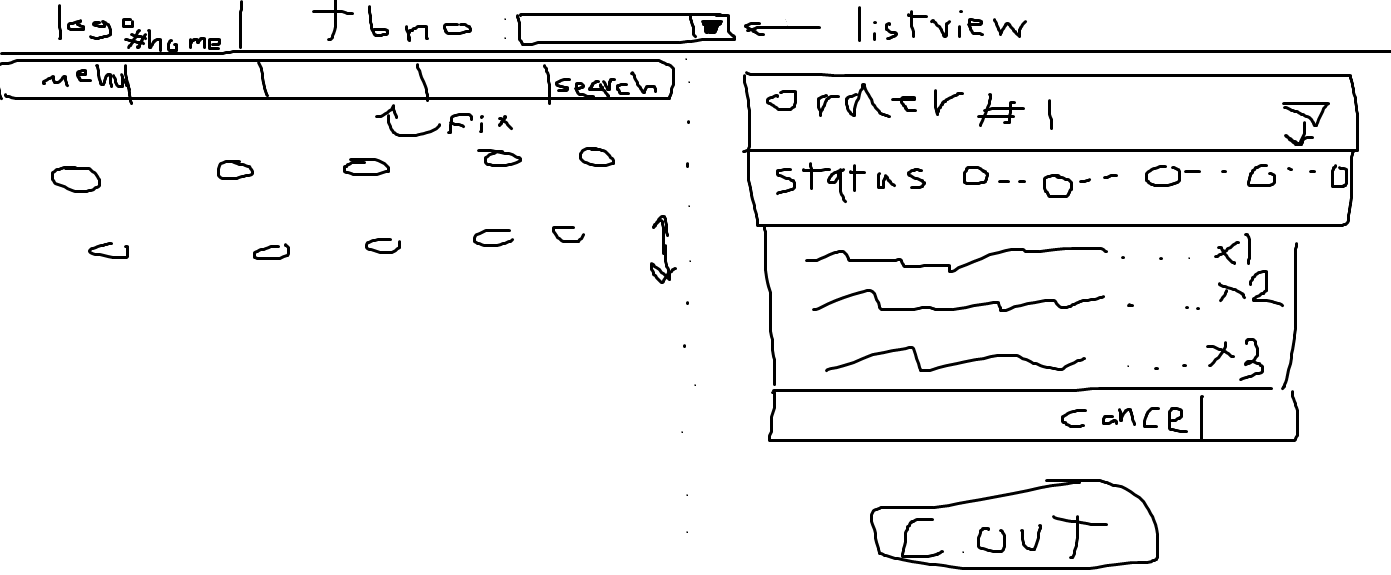 logo #home | tbno : listview
menu search
Fix
order #1
status
x1
x2
x3
cancel
C.OUT